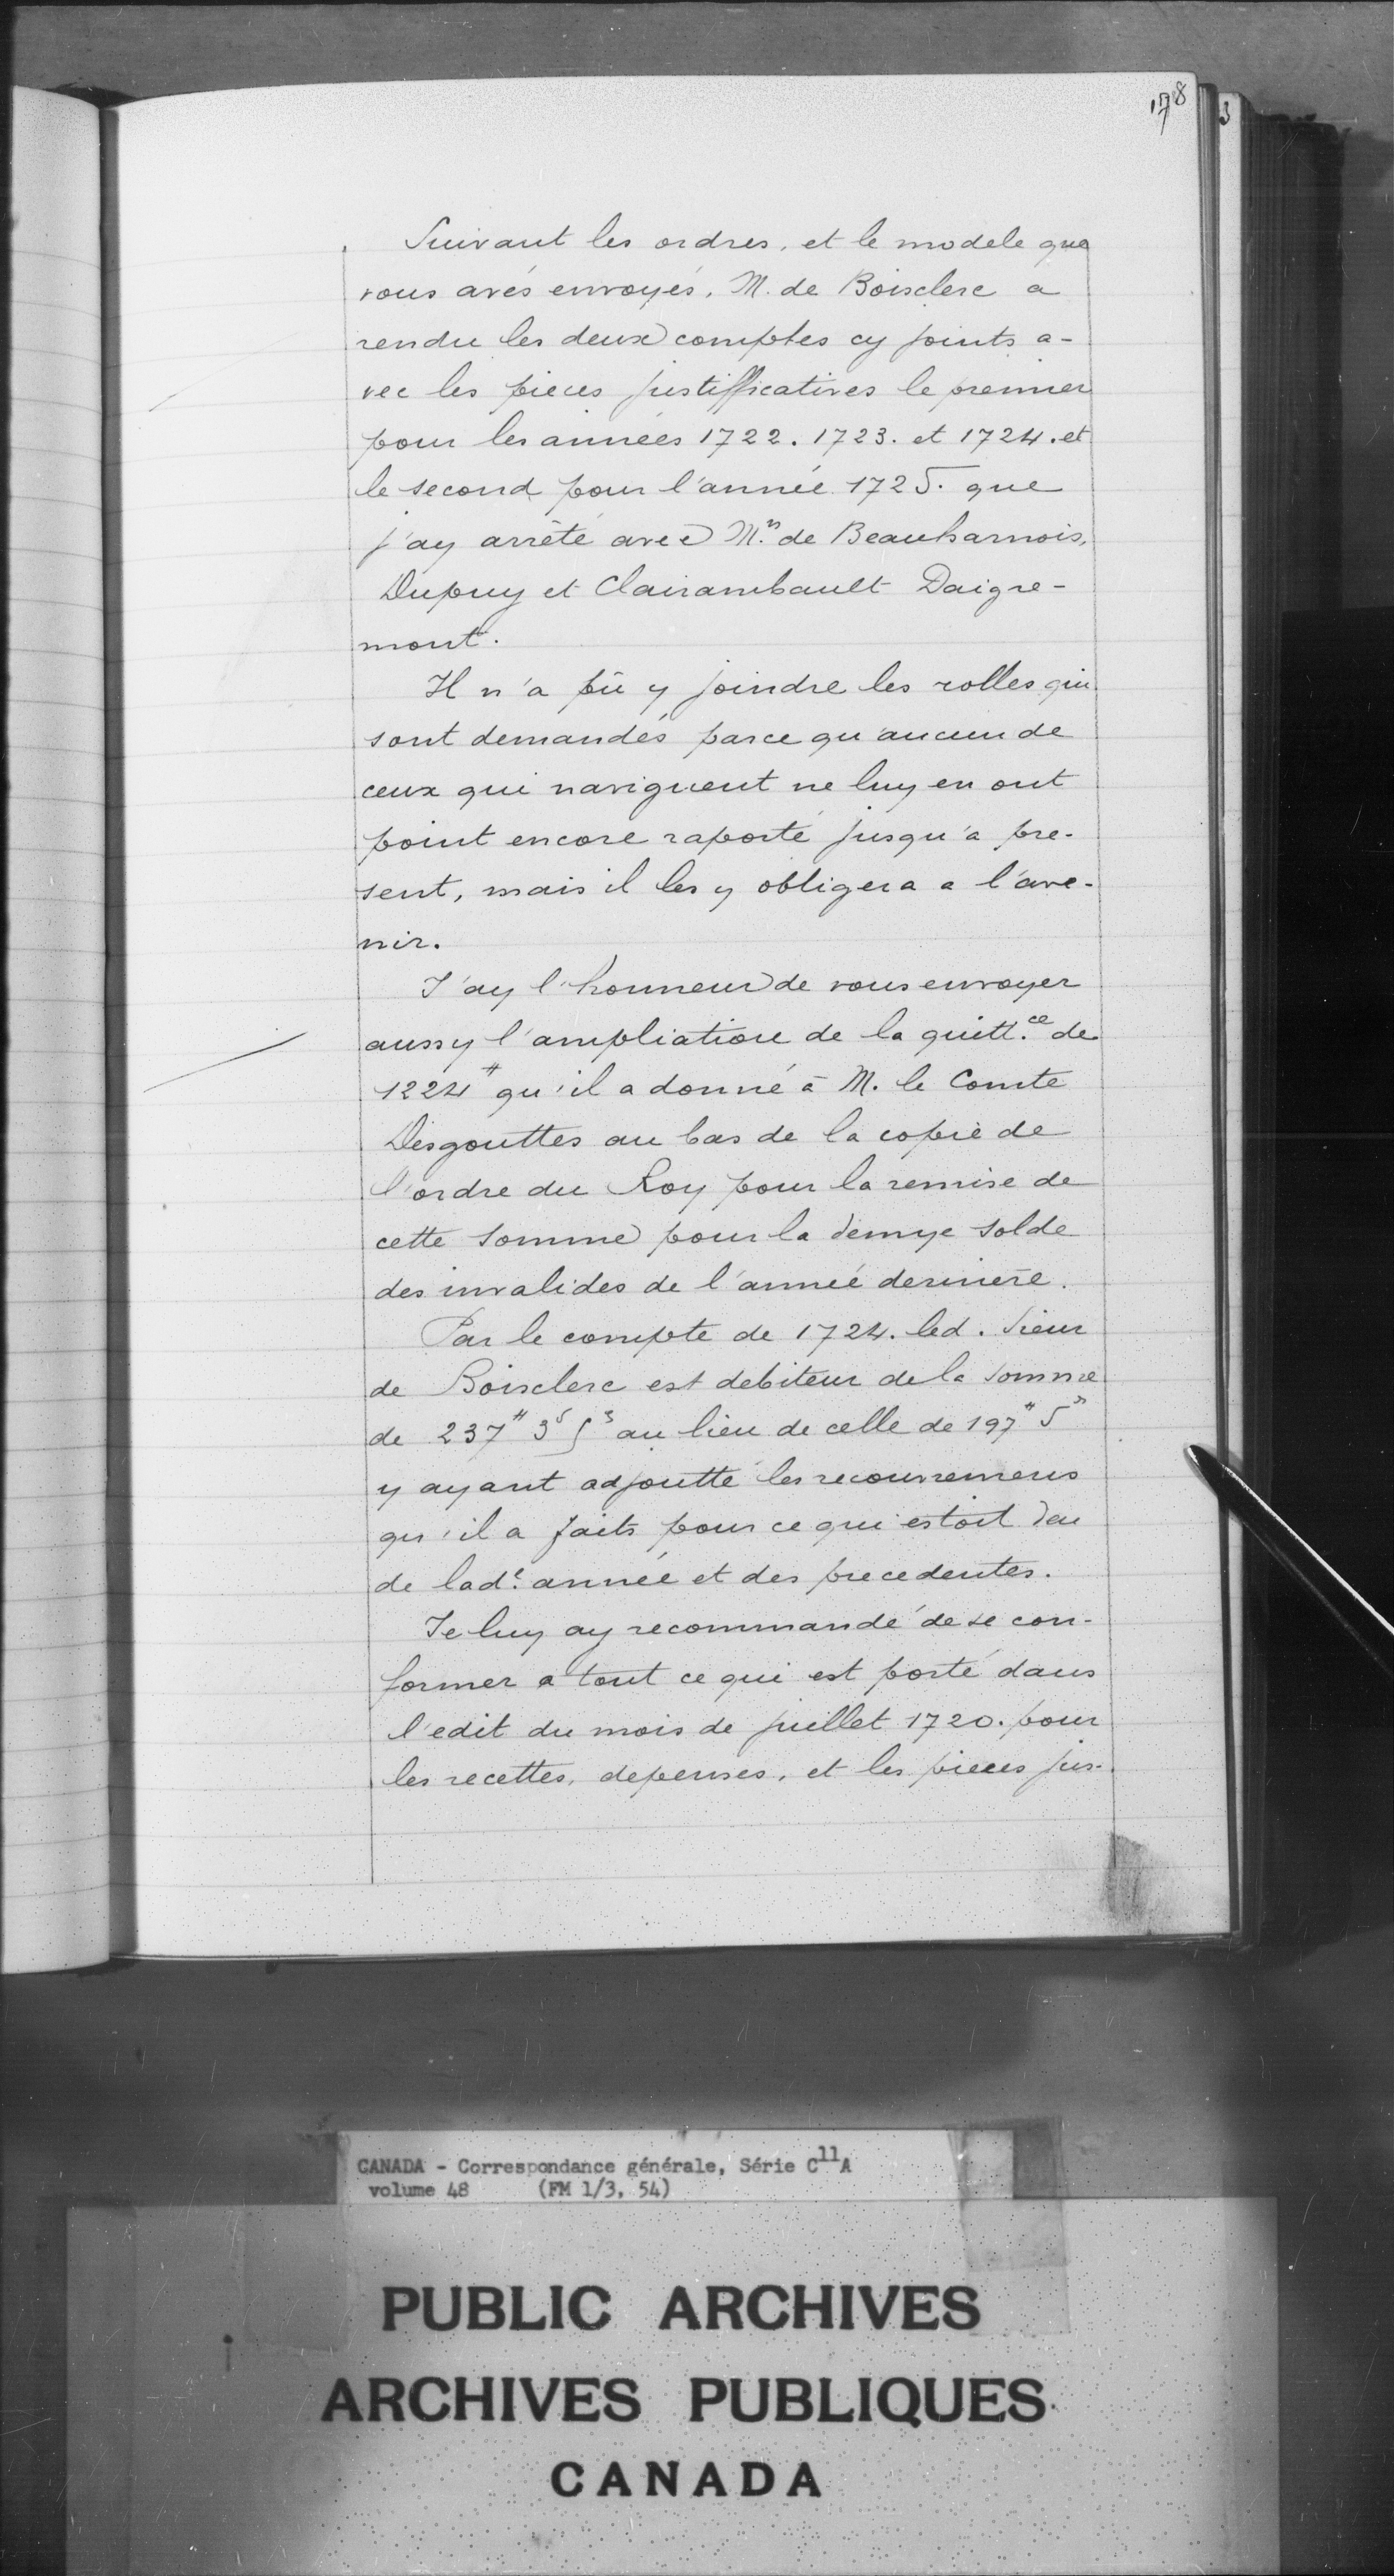 178
3
Suivant les ordres, et le modele que
vous avés envoyés, M. de Boisclerc a
rendu les deux comptes cy joints a-
vec les pieces justifficatives le premier
pour les années 1722. 1723. et 1724. et
le second pour l'année 1725. que
j'ay arrêté avec M.rs de Beauharnois,
Dupuy et Clairambault Daigre-
mont.
Il n'a pû y joindre les rolles qui
sont demandés parce qu'aucun de
ceux qui naviguent ne luy en ont
point encore raporté jusqu'a pre-
sent, mais il les y obligera a l'ave-
nir.
J'ay l'honneur de vous envoyer
aussy l'ampliation de la quitt.ce de
1224# qu'il a donné à M. le Comte
Desgouttes au bas de la copie de
l'ordre du Roy pour la remise de
cette somme pour la demye solde
des invalides de l'année derniere.
Par le compte de 1724. led. Sieur
de Boisclerc est debiteur de la somme
de 237# 3s au lieu de celle de 197# 5
y ayant adjoutté les recouvremens
qu'il a faits pour ce qui estoit deu
de lad.e année et des precedentes.
Je luy ay recommandé de se con-
former a tout ce qui est porté dans
l'edit du mois de juillet 1720. pour
les recettes, depenses, et les pieces jus-
CANADA - Correspondance générale, Série C11A
volume 48 (FM 1/3, 54)
PUBLIC ARCHIVES
ARCHIVES PUBLIQUES
CANADA